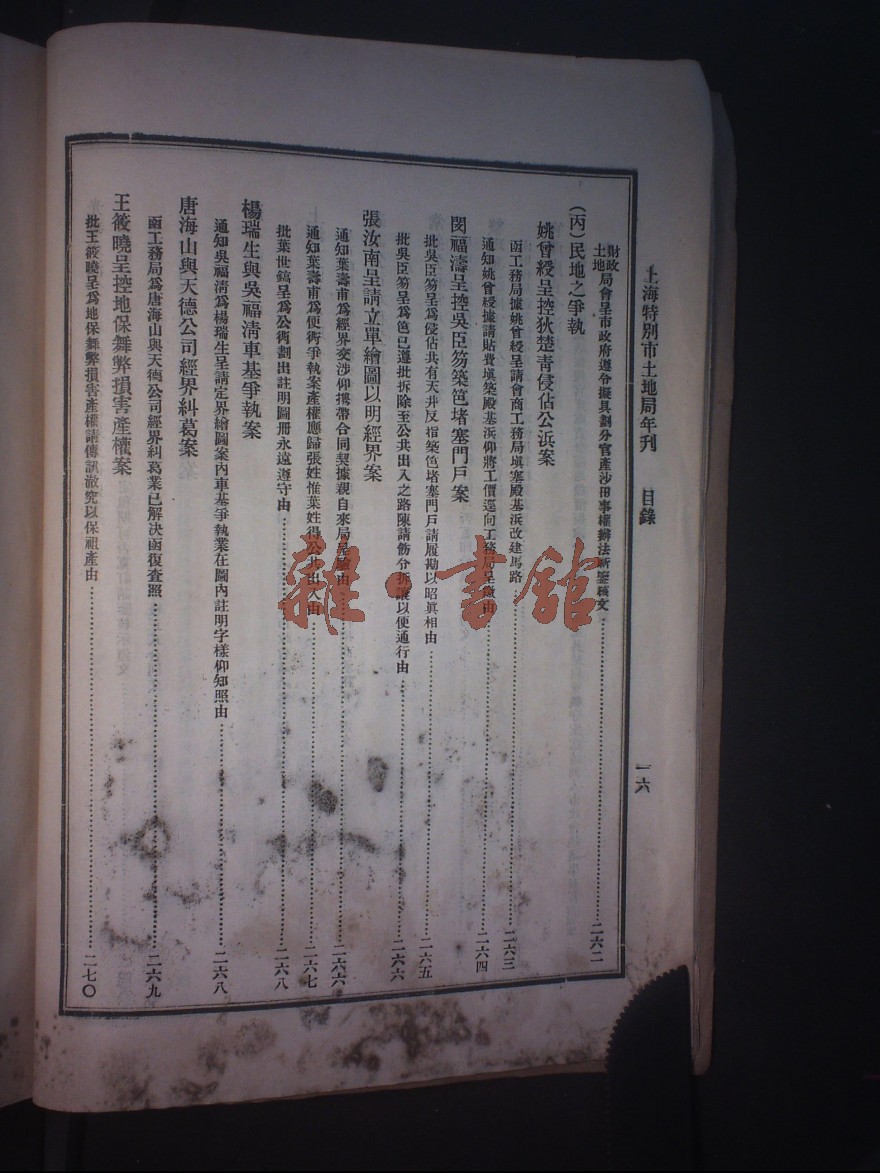 上海特別市土地局年刊　目錄　一六
財政土地局會呈市政府遵令擬具劃分官產沙田事權辦法祈鑒核文…………二六二
（丙）民地之爭執
姚曾綬呈控狄楚靑侵佔公浜案
函工務局據姚曾綬呈請會商工務局塡塞殿基浜改建馬路…………二六三
通知姚曾綬據請貼費塡築殿基浜仰將工價逕向工務局呈繳由…………二六四
閔福濤呈控吳臣笏築笆堵塞門戶案
批吳臣笏呈爲侵佔共有天井反指築笆堵塞門戶請履勘以昭眞相由…………二六五
批吳臣笏呈爲笆已遵批拆除至公共出入之路陳請飭令拆讓以便通行由…………二六六
張汝南呈請立單繪圖以明經界案
通知葉壽甫爲經界交涉仰攜帶合同契據親自來局呈驗由…………二六六
通知葉壽甫爲便衖爭執案產權應歸張姓惟葉姓得公共出入由…………二六七
批葉世鎬呈爲公衖劃出註明圖冊永遠遵守由…………二六八
楊瑞生與吳福淸車基爭執案
通知吳福淸爲楊瑞生呈請定界繪圖案內車基爭執業在圖內註明字樣仰知照由…………二六八
唐海山與天德公司經界糾葛案
函工務局爲唐海山與天德公司經界糾葛業已解決函復查照…………二六九
王筱曉呈控地保舞弊損害產權案
批王筱曉呈爲地保舞弊損害產權請傳訊澈究以保祖產由…………二七〇
雜·書館